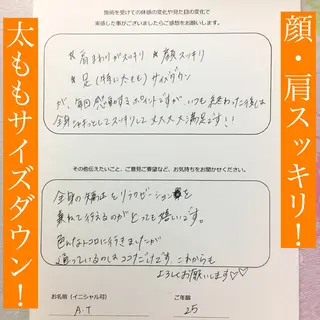 顔・肩スッキリ！
太ももサイズダウン！
施術を受けての体感の変化や見た目の変化で
実感した事がございましたらご感想をお願いします。
*肩まわりがスッキリ *顔スッキリ
*足(特に太もも)サイズダウン
が、毎回感動するポイントですが、いつも終わった後は
全身シャキッとしてスッキリして大大大大満足です!!
その他伝えたいこと、ご意見ご要望など、お気持ちをお聞かせください。
全身の矯正もリラクゼーションも
兼ねて行えるのがとっても嬉しいです。
色んなトコロに行きましたが
通っているのはココだけです。これからも
よろしくお願いします♡♡
お名前(イニシャル可)
A.T
ご年齢
25